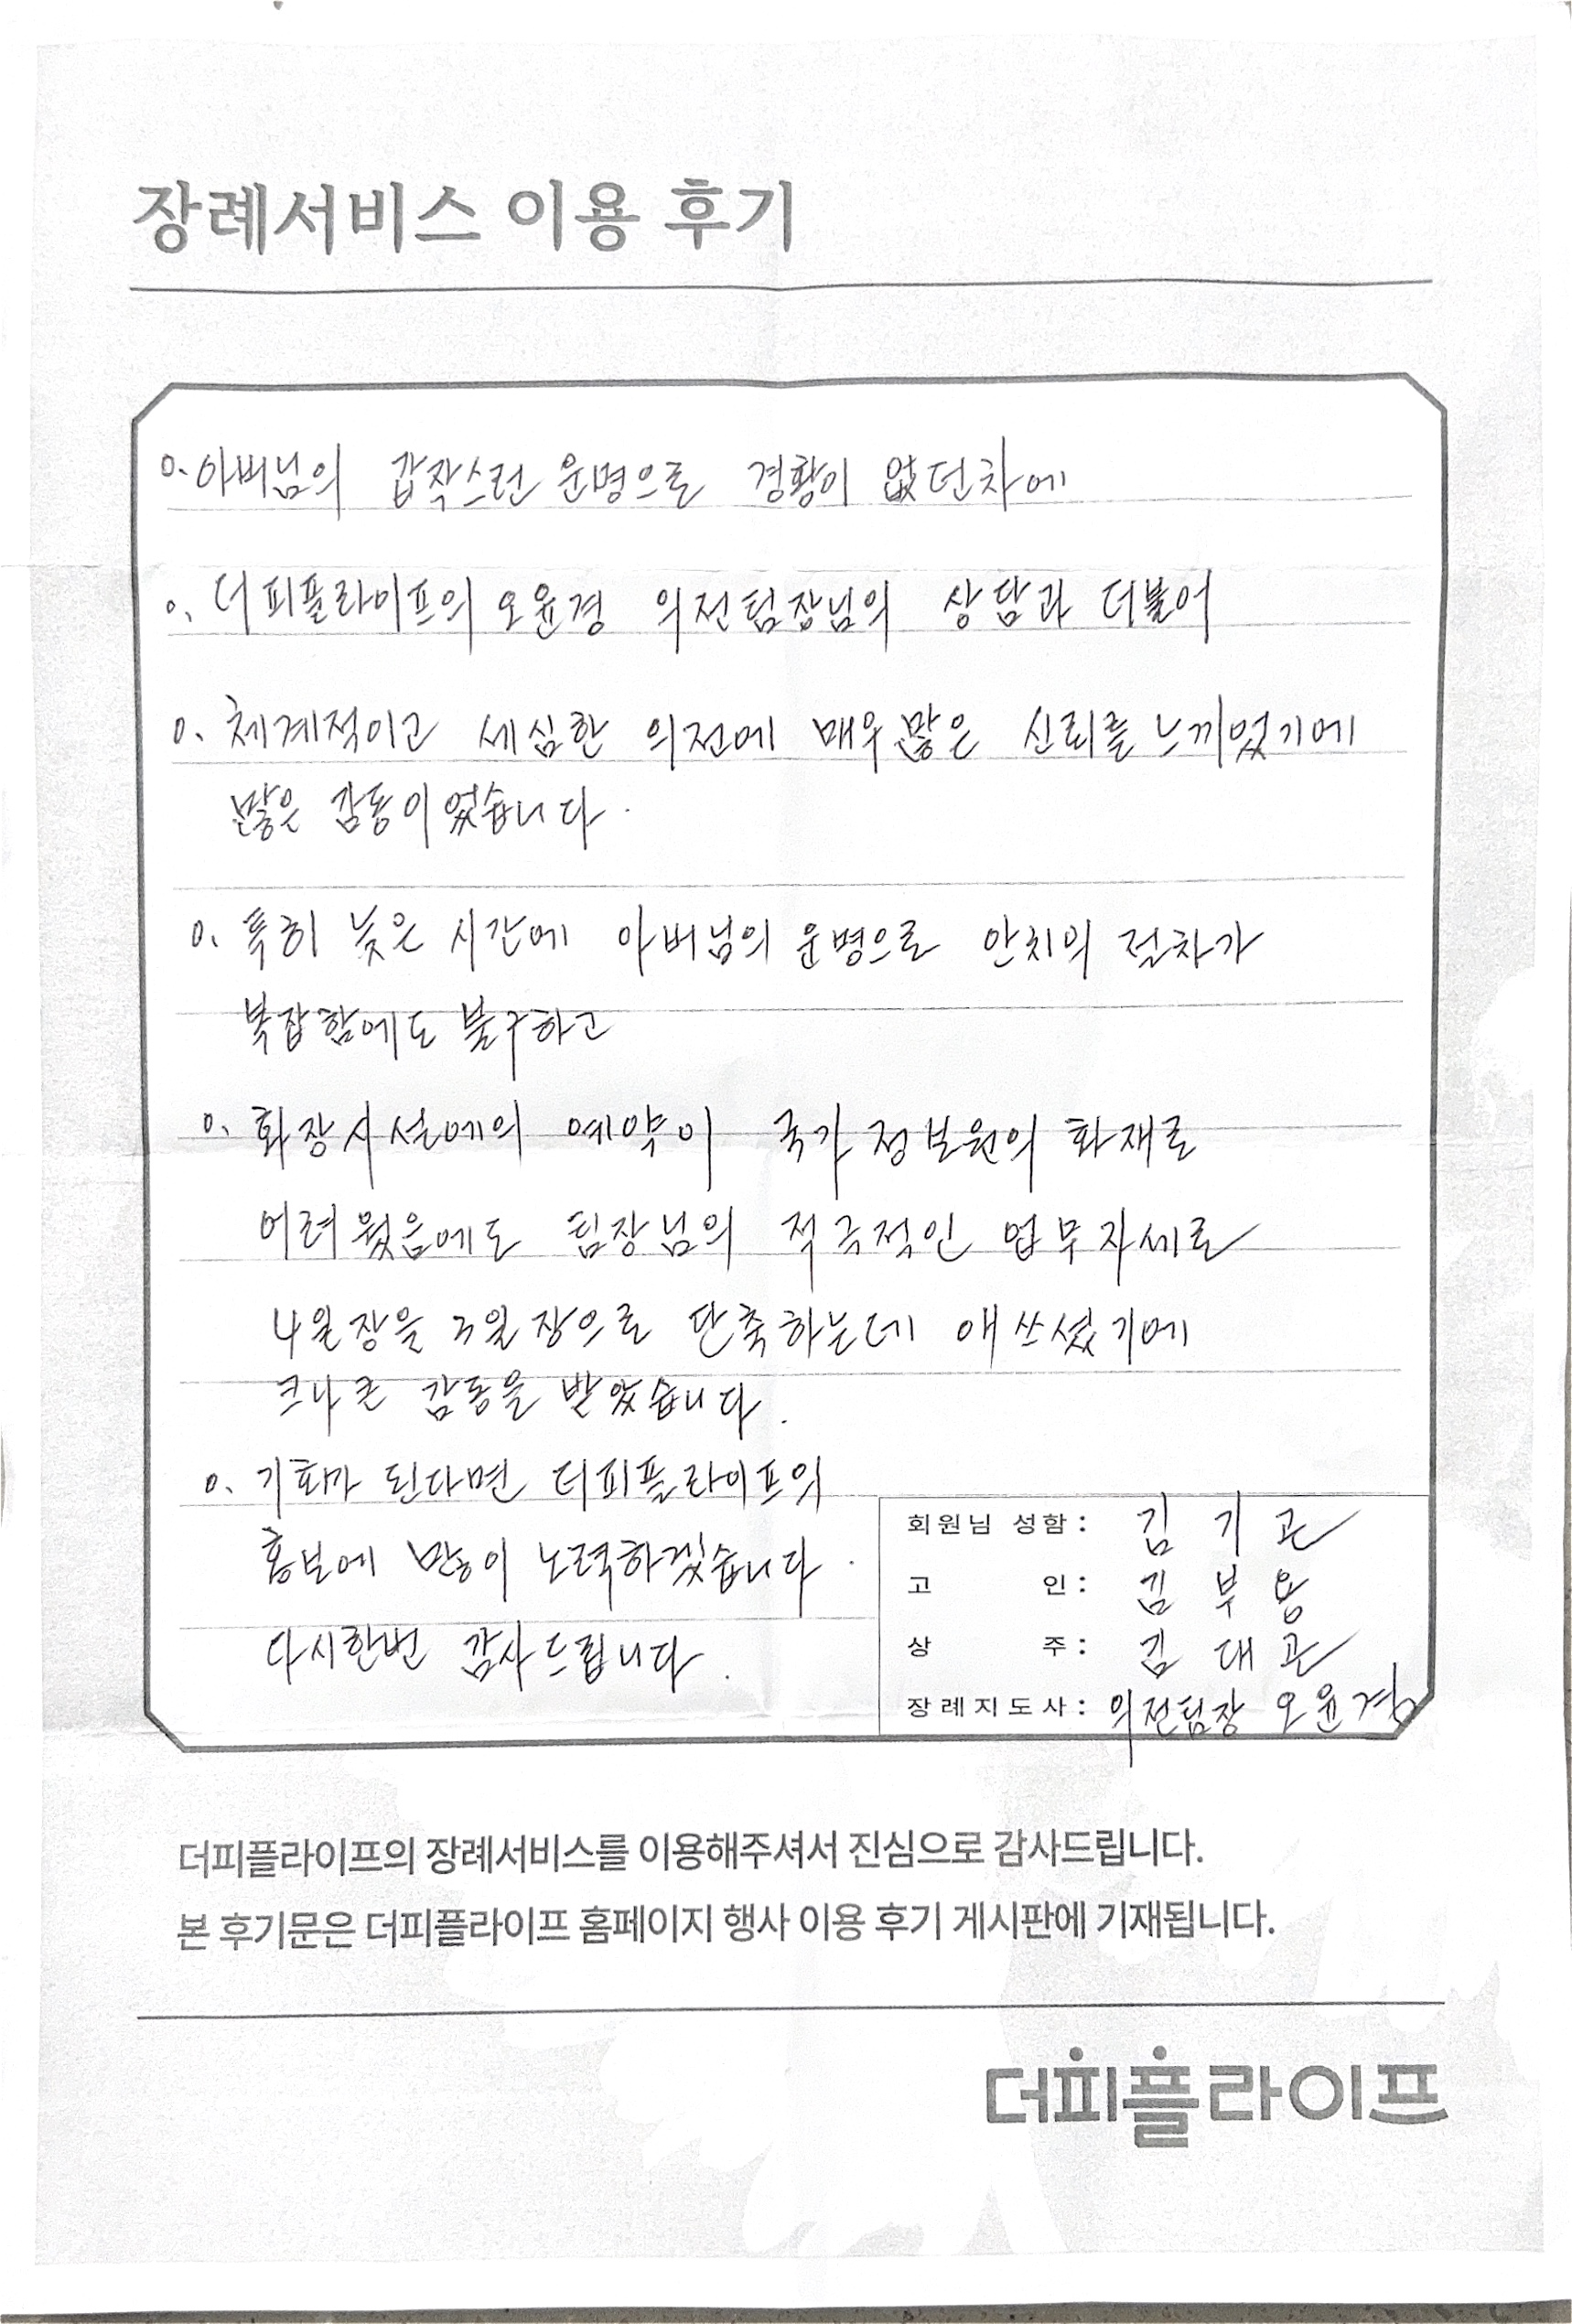 장례서비스 이용 후기
o. 아버님의 갑작스런 운명으로 경황이 없던차에
o. 더피플라이프의 오윤경 의전팀장님의 상담과 더불어
o. 체계적이고 세심한 의전에 매우 많은 신뢰를 느끼었기에
많은 감동이었습니다.
o. 특히 늦은 시간에 아버님의 운명으로 안치의 절차가
복잡함에도 불구하고
o. 화장시설에의 예약이 국가정보원의 화재로
어려웠음에도 팀장님의 적극적인 업무자세로
4일장을 3일장으로 단축하는데 애쓰셨기에
크나큰 감동을 받았습니다.
o. 기회가 된다면 더피플라이프의
홍보에 많이 노력하겠습니다.
다시한번 감사드립니다.
회원님 성함: 김 기 곤
고 인: 김 부 용
상 주: 김 대 곤
장례지도사: 의전팀장 오윤경
더피플라이프의 장례서비스를 이용해주셔서 진심으로 감사드립니다.
본 후기문은 더피플라이프 홈페이지 행사 이용 후기 게시판에 기재됩니다.
더피플라이프